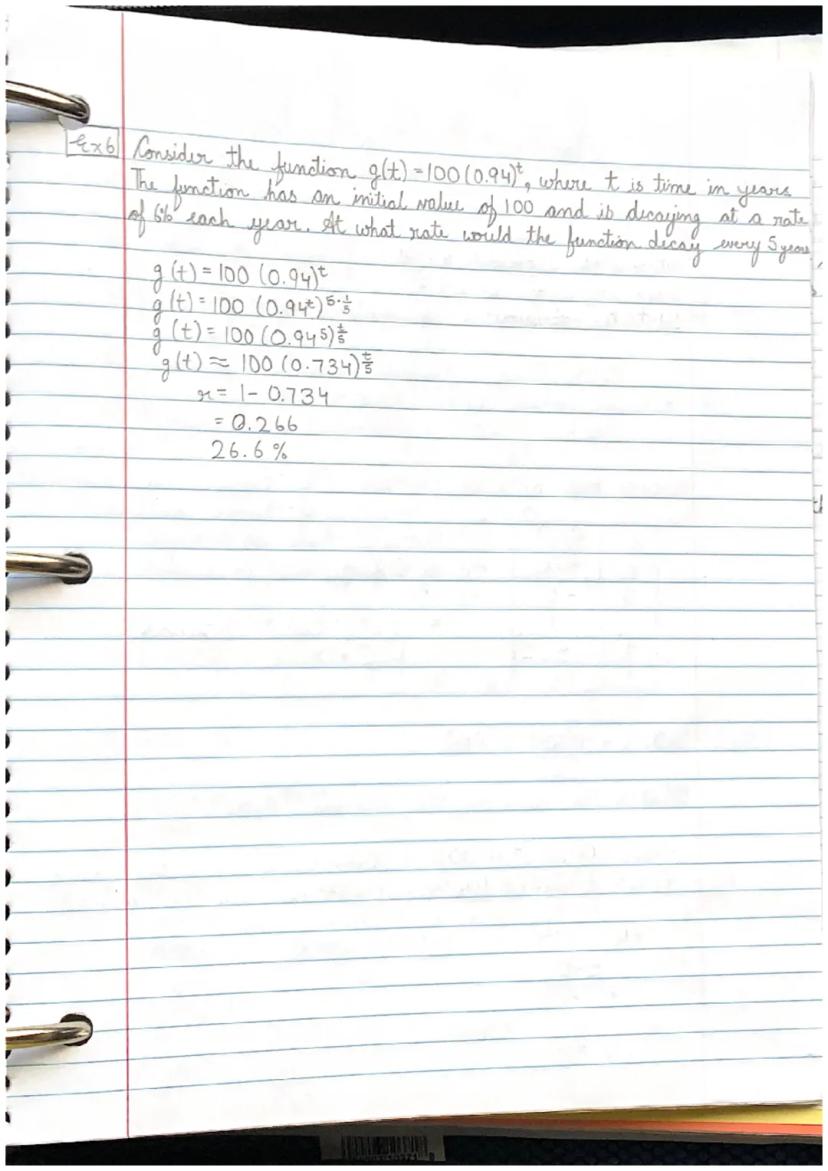 Ex6 Consider the function g(t) = 100(0.94)ᵗ, where t is time in years
The function has an initial value of 100 and is decaying at a rate
of 6% each year. At what rate would the function decay every 5 years
g(t) = 100 (0.94)ᵗ
g(t) = 100 (0.94ᵗ)^{5·1/5}
g(t) = 100 (0.94⁵)^{t/5}
g(t) ≈ 100 (0.734)^{t/5}
r = 1 - 0.734
= 0.266
26.6%